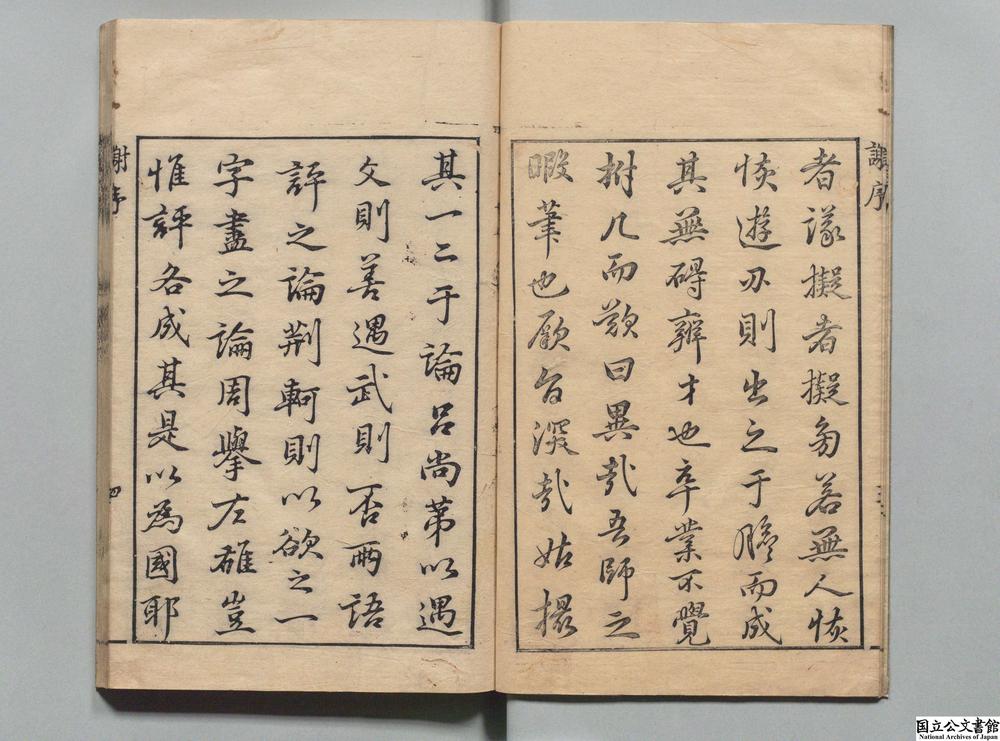 謝序 三
者議擬者擬旁若無人恢
恢遊刃則出之于膽而成
其無碍辨才也卒業不覺
拊几而歎曰異哉吾師之
暇筆也厥旨深哉姑撮
其一二于論呂尚第以遇
文則善遇武則否兩語
評之論荆軻則以欲之一
字盡之論周舉左雄豈
惟評各成其是以為國耶
謝序 四
国立公文書館
National Archives of Japan